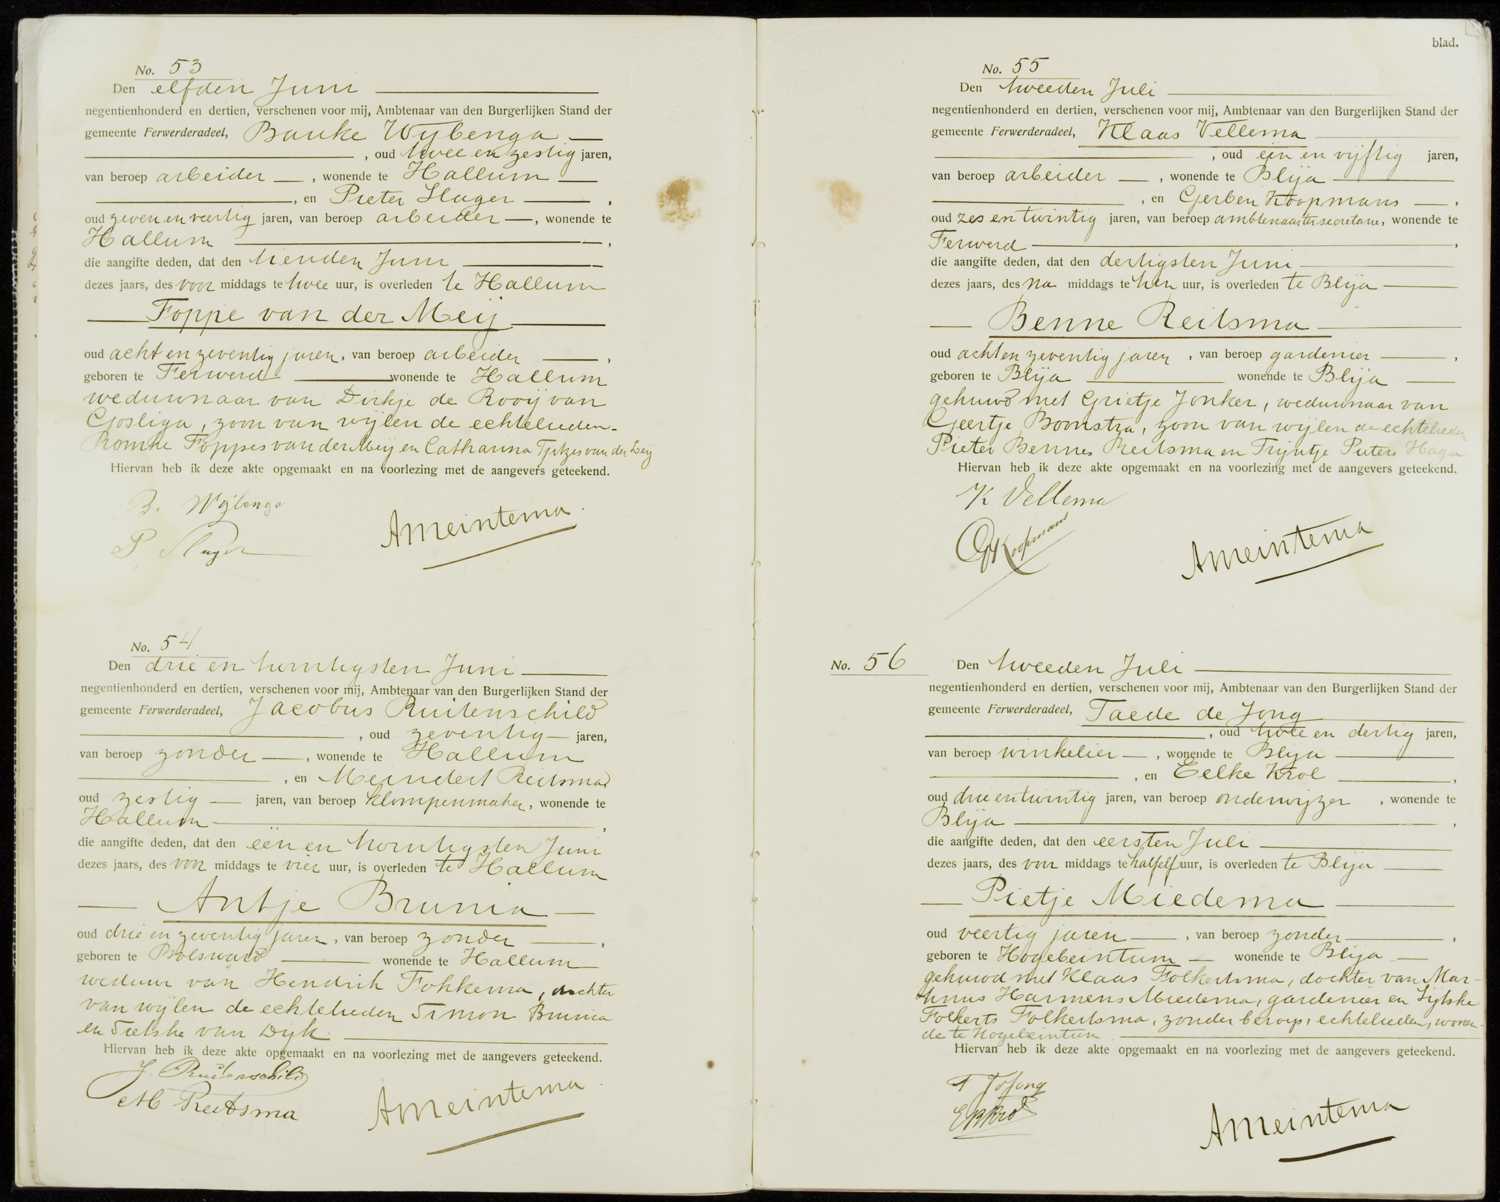 No. 53
Den elfden Juni
negentienhonderd en dertien, verschenen voor mij, Ambtenaar van den Burgerlijken Stand der
gemeente Ferwerderadeel, Bauke Wijbenga
, oud twee en zestig jaren,
van beroep arbeider, wonende te Hallum
, en Pieter Slager,
oud zeven en veertig jaren, van beroep arbeider, wonende te
Hallum.
die aangifte deden, dat den tienden Juni
dezes jaars, des voor middags te twee uur, is overleden te Hallum
Foppe van der Meij
oud acht en zeventig jaren, van beroep arbeider,
geboren te Ferwerd wonende te Hallum
weduwnaar van Dirkje de Rooij van
Gosliga, zoon van wijlen de echtelieden
Romke Foppes van der Meij en Catharina Tjitzes van der Leij
Hiervan heb ik deze akte opgemaakt en na voorlezing met de aangevers geteekend.
B. Wijbenga
P Slager
AMeintema
No. 54
Den drie en twintigsten Juni
negentienhonderd en dertien, verschenen voor mij, Ambtenaar van den Burgerlijken Stand der
gemeente Ferwerderadeel, Jacobus Ruitenschild
, oud zeventig jaren,
van beroep zonder, wonende te Hallum
, en Meindert Reitsma
oud zestig jaren, van beroep klompenmaker, wonende te
Hallum.
die aangifte deden, dat den een en twintigsten Juni
dezes jaars, des voor middags te vier uur, is overleden te Hallum
Antje Brunia
oud drie en zeventig jaren, van beroep zonder,
geboren te Bolsward wonende te Hallum
weduwe van Hendrik Fokkema, dochter
van wijlen de echtelieden Simon Brunia
en Sietske van Dijk.
Hiervan heb ik deze akte opgemaakt en na voorlezing met de aangevers geteekend.
J. Ruitenschild
M Reitsma
AMeintema
blad.
No. 55
Den tweeden Juli
negentienhonderd en dertien, verschenen voor mij, Ambtenaar van den Burgerlijken Stand der
gemeente Ferwerderadeel, Klaas Vellema
, oud een en vijftig jaren,
van beroep arbeider, wonende te Blija
, en Gerben Koopmans,
oud zes en twintig jaren, van beroep ambtenaar ter secretarie, wonende te
Ferwerd.
die aangifte deden, dat den dertigsten Juni
dezes jaars, des na middags te tien uur, is overleden te Blija
Benne Reitsma
oud acht en zeventig jaren, van beroep gardenier,
geboren te Blija wonende te Blija
gehuwd met Grietje Jonker, weduwnaar van
Geertje Boonstra, zoon van wijlen de echtelieden
Pieter Bennes Reitsma en Trijntje Pieters Haga
Hiervan heb ik deze akte opgemaakt en na voorlezing met de aangevers geteekend.
K Vellema
G Koopmans
AMeintema
No. 56
Den tweeden Juli
negentienhonderd en dertien, verschenen voor mij, Ambtenaar van den Burgerlijken Stand der
gemeente Ferwerderadeel, Taede de Jong
, oud twee en dertig jaren,
van beroep winkelier, wonende te Blija
, en Eelke Krol.
oud drie en twintig jaren, van beroep onderwijzer, wonende te
Blija.
die aangifte deden, dat den eersten Juli
dezes jaars, des voor middags te half elf uur, is overleden te Blija
Pietje Miedema
oud veertig jaren, van beroep zonder.
geboren te Hogebeintum wonende te Blija
gehuwd met Klaas Folkertsma, dochter van Mar-
tinus Harmens Miedema, gardenier en Sijtske
Folkerts Folkertsma, zonder beroep, echtelieden, wonen-
de te Hogebeintum
Hiervan heb ik deze akte opgemaakt en na voorlezing met de aangevers geteekend.
T de Jong
E Krol
AMeintema